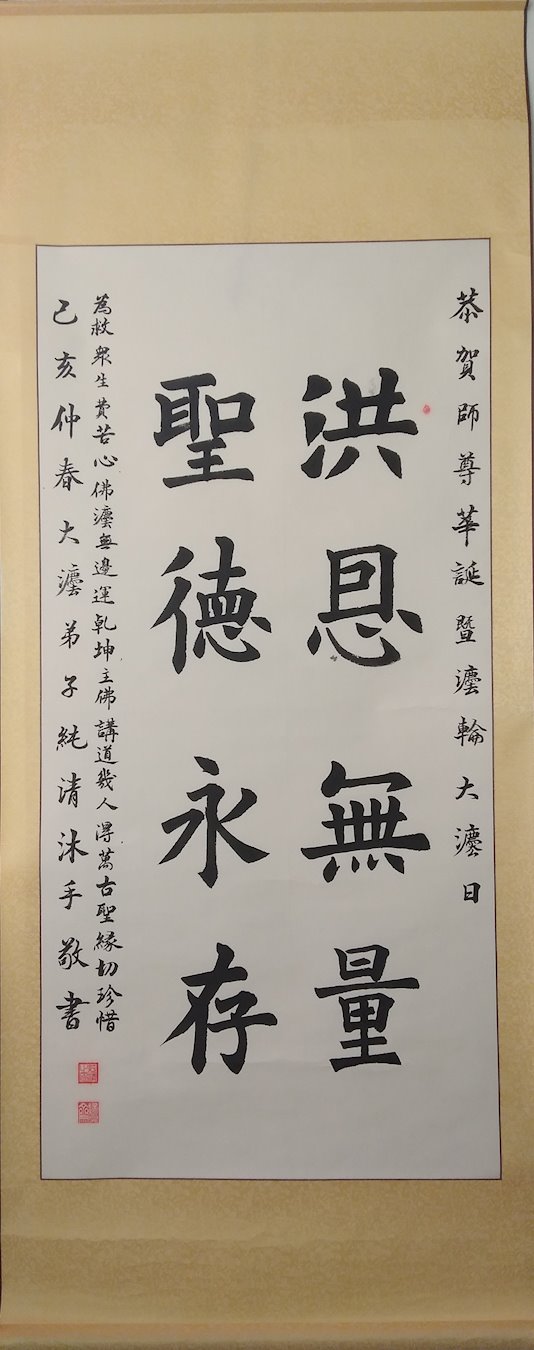 恭賀師尊華誕暨灋輪大灋日
洪恩無量
聖德永存
為救衆生費苦心佛灋無邊運乾坤主佛講道幾人得萬古聖緣切珍惜
己亥仲春大灋弟子純清沐手敬書